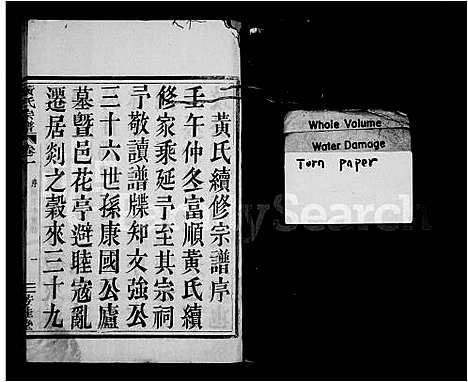 黃氏續修宗譜序
壬午仲冬富順黃氏續
修家乘延予至其宗祠
予敬讀譜牒知文強公
三十六世孫康國公廬
墓暨邑花亭避睦寇亂
遷居剡之穀來三十九
黃氏宗譜
卷一
序
一
Whole Volume
Water Damage
Torn Paper